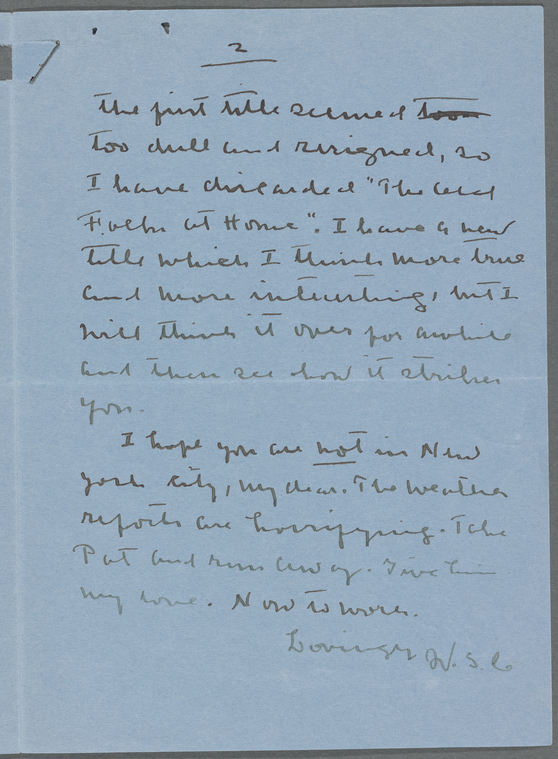 2
the first title seemed too
too dull and resigned, so
I have discarded "The Old
Folks at Home". I have a new
title which I think more true
and more interesting, but I
will think it over for awhile
and then see how it strikes
you.
I hope you are not in New
York City, my dear. The weather
reports are horrifying. Take
Pat and run away. Give him
my love. Now to work.
Lovingly W. S. C